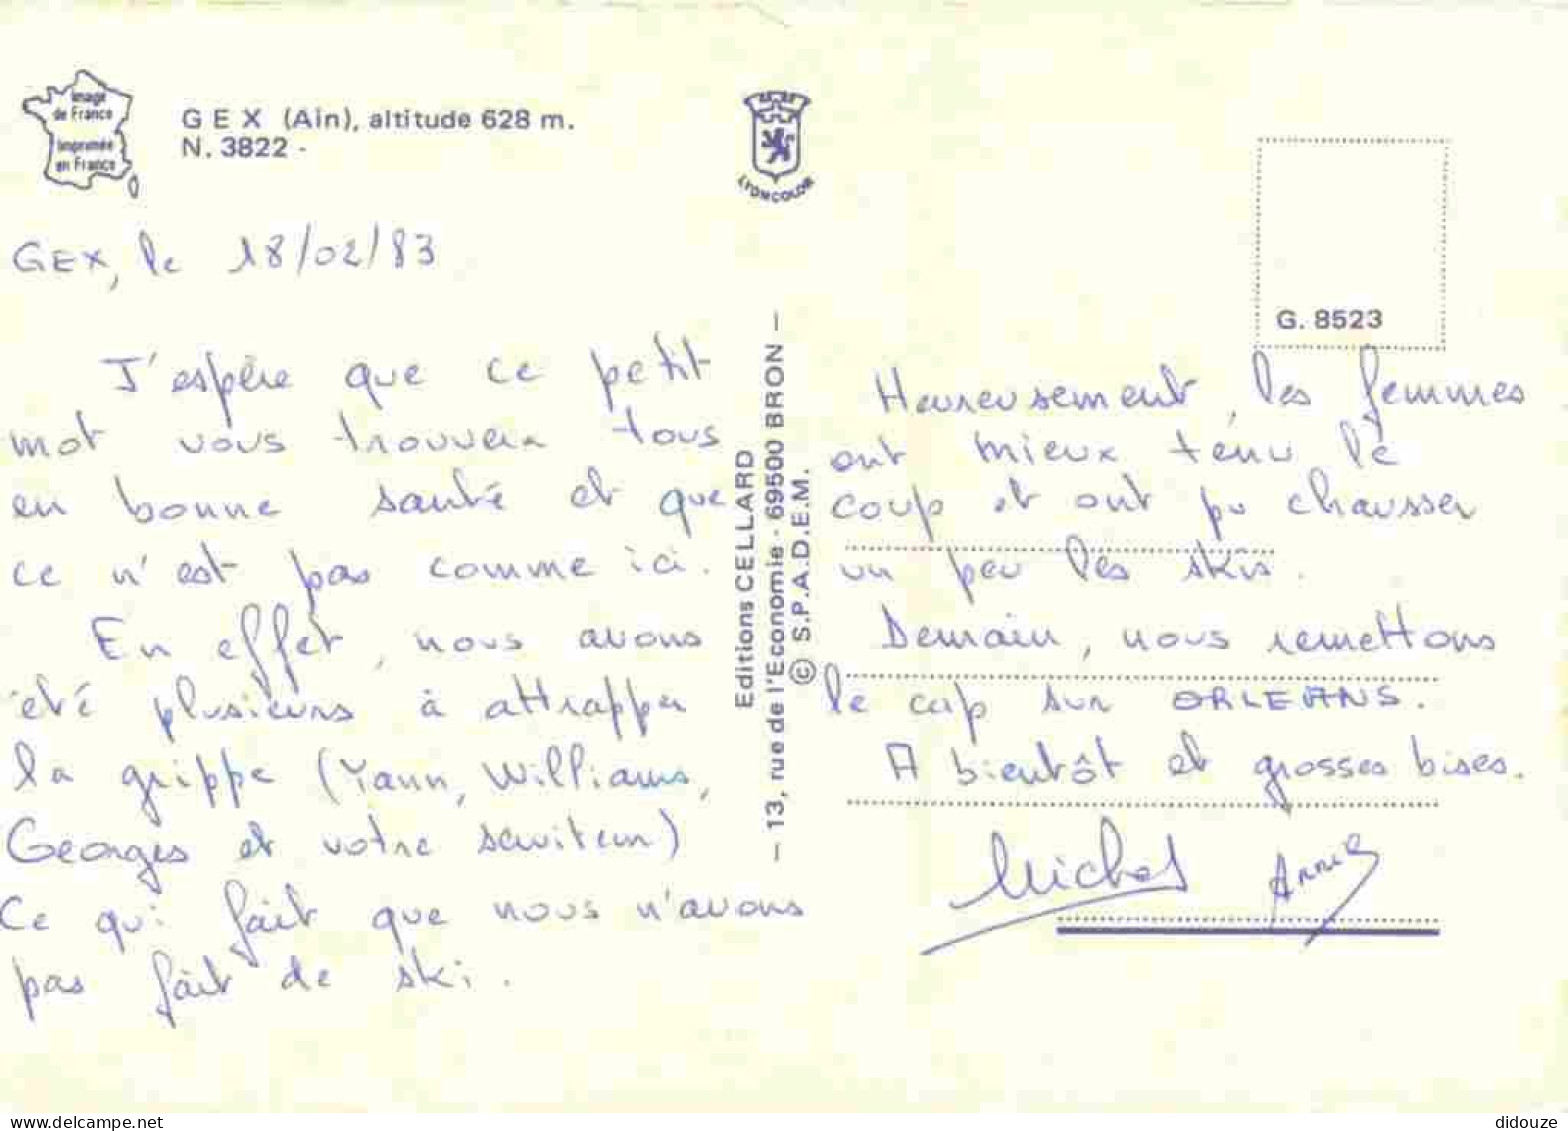 Image
de France
Imprimée
en France
G E X (Ain), altitude 628 m.
N. 3822 -
LYONCOLOR
G. 8523
GEX, le 18/02/83
J'espère que ce petit
mot vous trouvera tous
en bonne santé et que
ce n'est pas comme ici.
En effet, nous avons
été plusieurs à attrapper
la grippe (Yann, Williams,
Georges et votre serviteur)
Ce qui fait que nous n'avons
pas fait de ski.
Editions CELLARD
— 13, rue de l'Economie - 69500 BRON —
© S.P.A.D.E.M.
Heureusement, les femmes
ont mieux ténu lé
coup et ont pu chausser
un peu les skis.
Demain, nous remettons
le cap sur ORLEANS.
A bientôt et grosses bises.
Michel Annie
delcampe.net
didouze